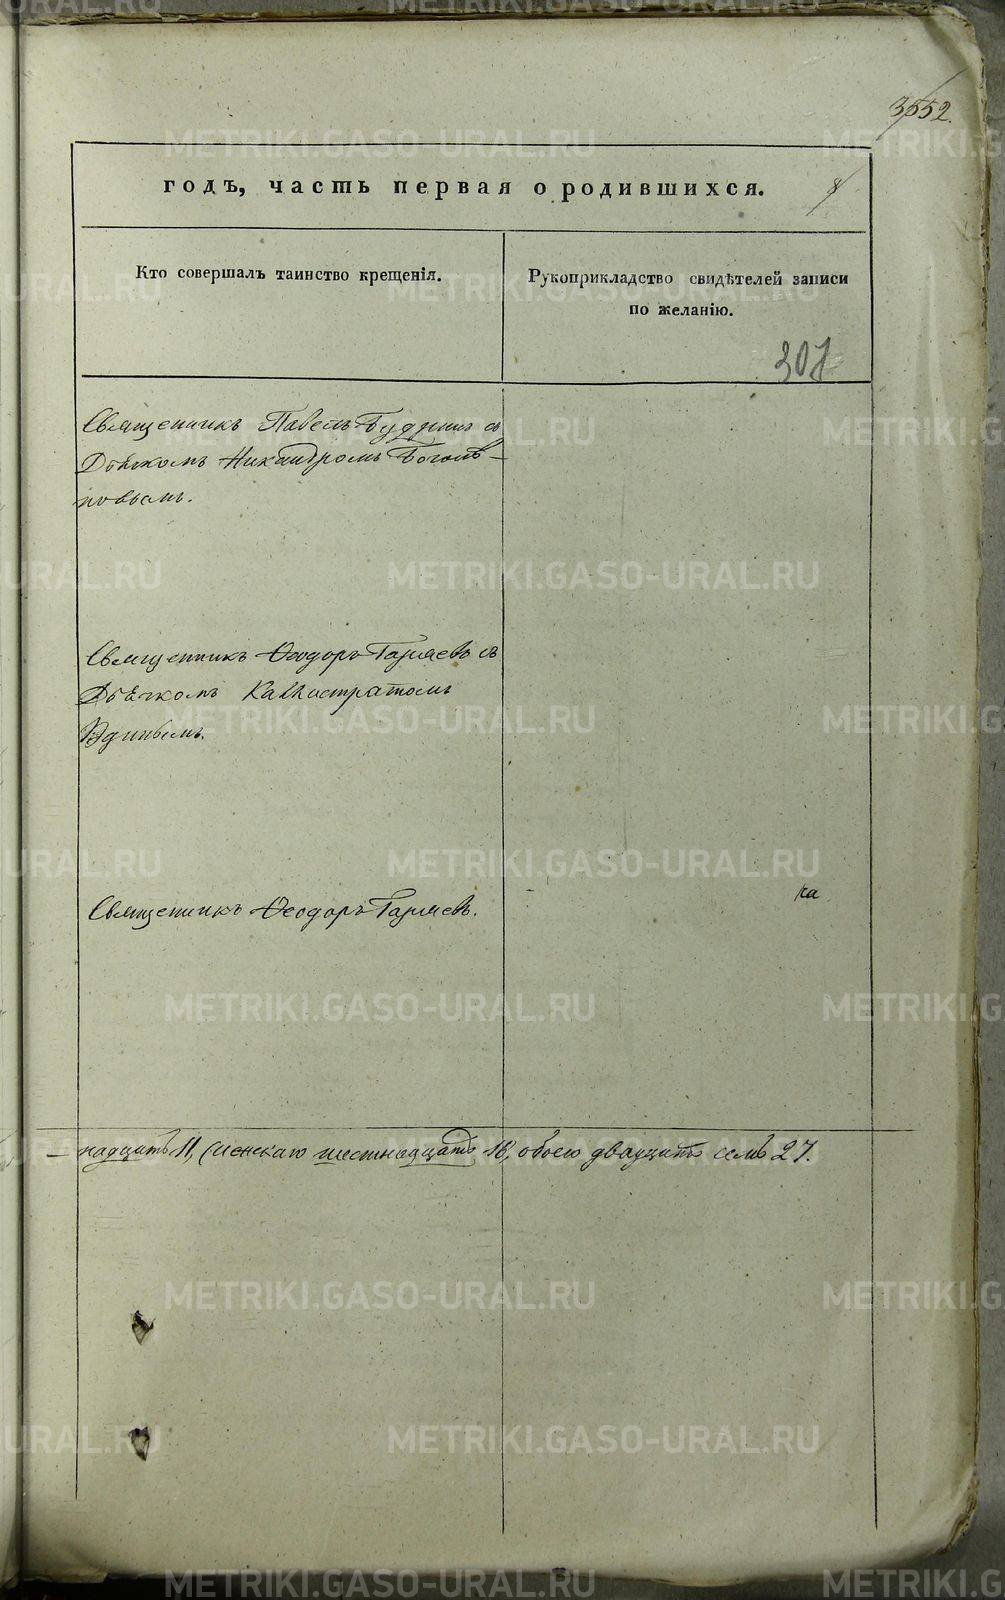 3552.
годъ, часть первая о родившихся. 8
Кто совершалъ таинство крещенія.
Рукоприкладство свидѣтелей записи
по желанію.
307
Священникъ Павелъ Будринъ съ
Дьячкомъ Никандромъ Боголѣ-
повымъ.
Священникъ Ѳеодоръ Гаряевъ съ
Дьячкомъ Каллистратомъ
Удинцымъ.
Священникъ Ѳеодоръ Гаряевъ.
ка
надцать 11, женскаго шестнадцать 16, обоего двадцать семь 27.
METRIKI.GASO-URAL.RU